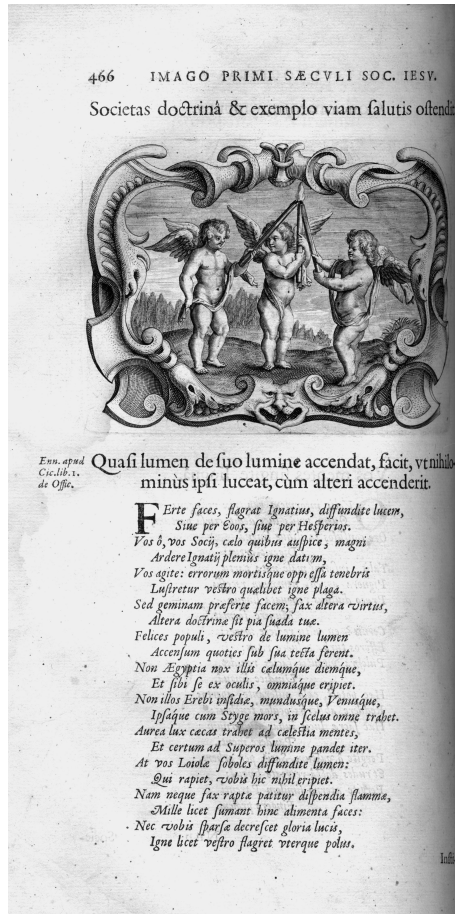 466 IMAGO PRIMI SÆCULI SOC. IESV.
Societas doctrinâ & exemplo viam ſalutis oſtendit
Enn. apud
Cic. lib. 1.
de Offic.
Quaſi lumen de ſuo lumine accendat, facit, vt nihilo-
minùs ipſi luceat, cùm alteri accenderit.
FErte faces, flagrat Ignatius, diffundite lucem,
Siue per Eoos, ſiue per Heſperios.
Vos ô, vos Socij, cælo quibus auſpice, magni
Ardere Ignatij plenius igne datum,
Vos agite: errorum mortiſque oppreſſa tenebris
Luſtretur veſtro quælibet igne plaga.
Sed geminam præferte facem; fax altera virtus,
Altera doctrinæ ſit pia ſuada tuæ.
Felices populi, veſtro de lumine lumen
Accenſum quoties ſub ſua tecta ferent.
Non Ægyptia nox illis cælumque diemque,
Et ſibi ſe ex oculis, omniaque eripiet.
Non illos Erebi inſidiæ, mundusque, Venusque,
Ipſaque cum Styge mors, in ſcelus omne trahet.
Aurea lux cæcas trahet ad cæleſtia mentes,
Et certum ad Superos lumine pandet iter.
At vos Loiolæ ſoboles diffundite lumen:
Qui rapiet, vobis hic nihil eripiet.
Nam neque fax raptæ patitur diſpendia flammæ,
Mille licet ſumant hinc alimenta faces:
Nec vobis ſparſæ decreſcet gloria lucis,
Igne licet veſtro flagret vterque polus.